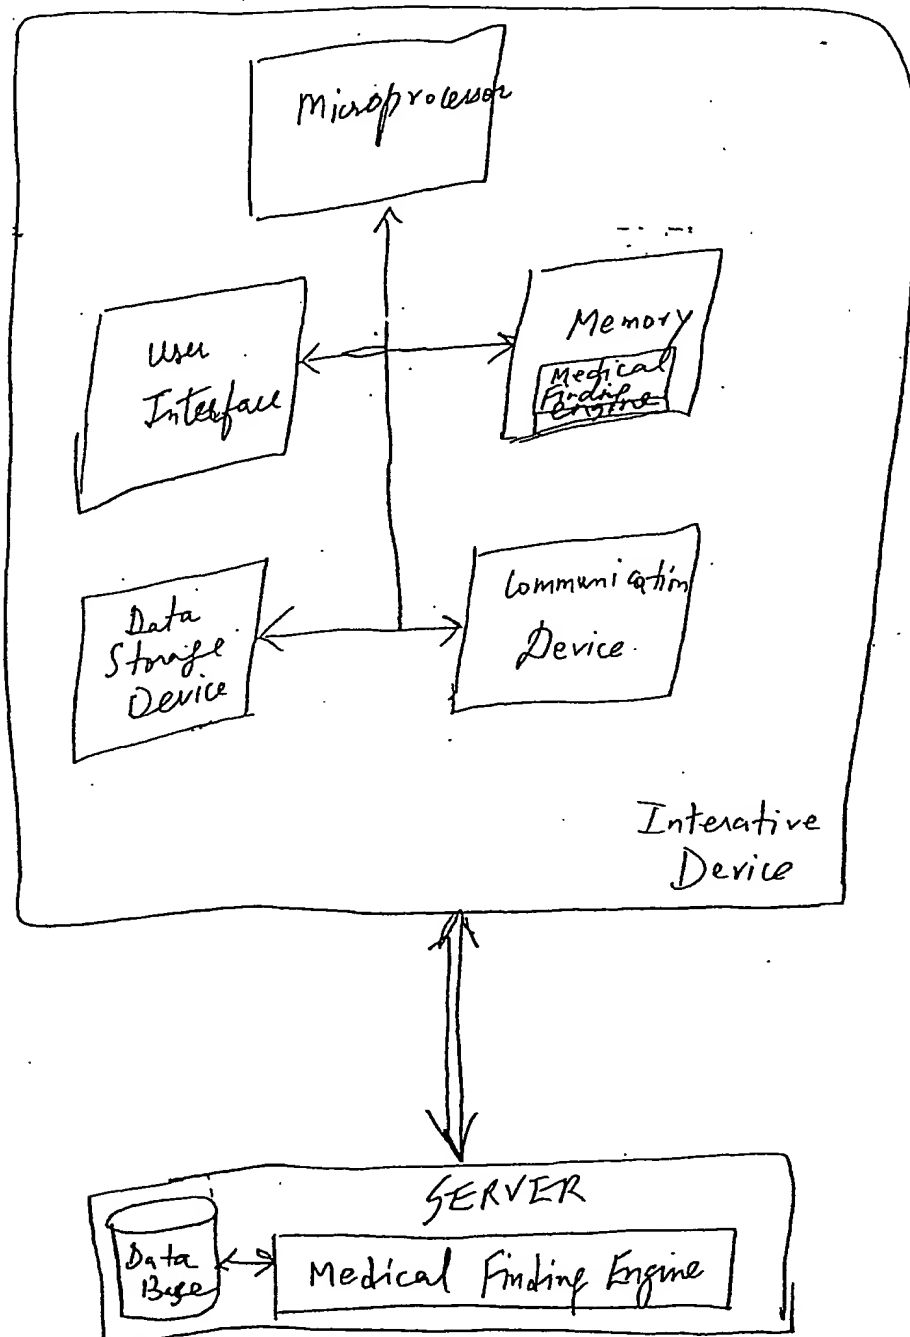 Microprocessor
User
Interface
Memory
Medical
Finding
Engine
Data
Storage
Device
Communication
Device
Interative
Device
SERVER
Data
Base
Medical Finding Engine